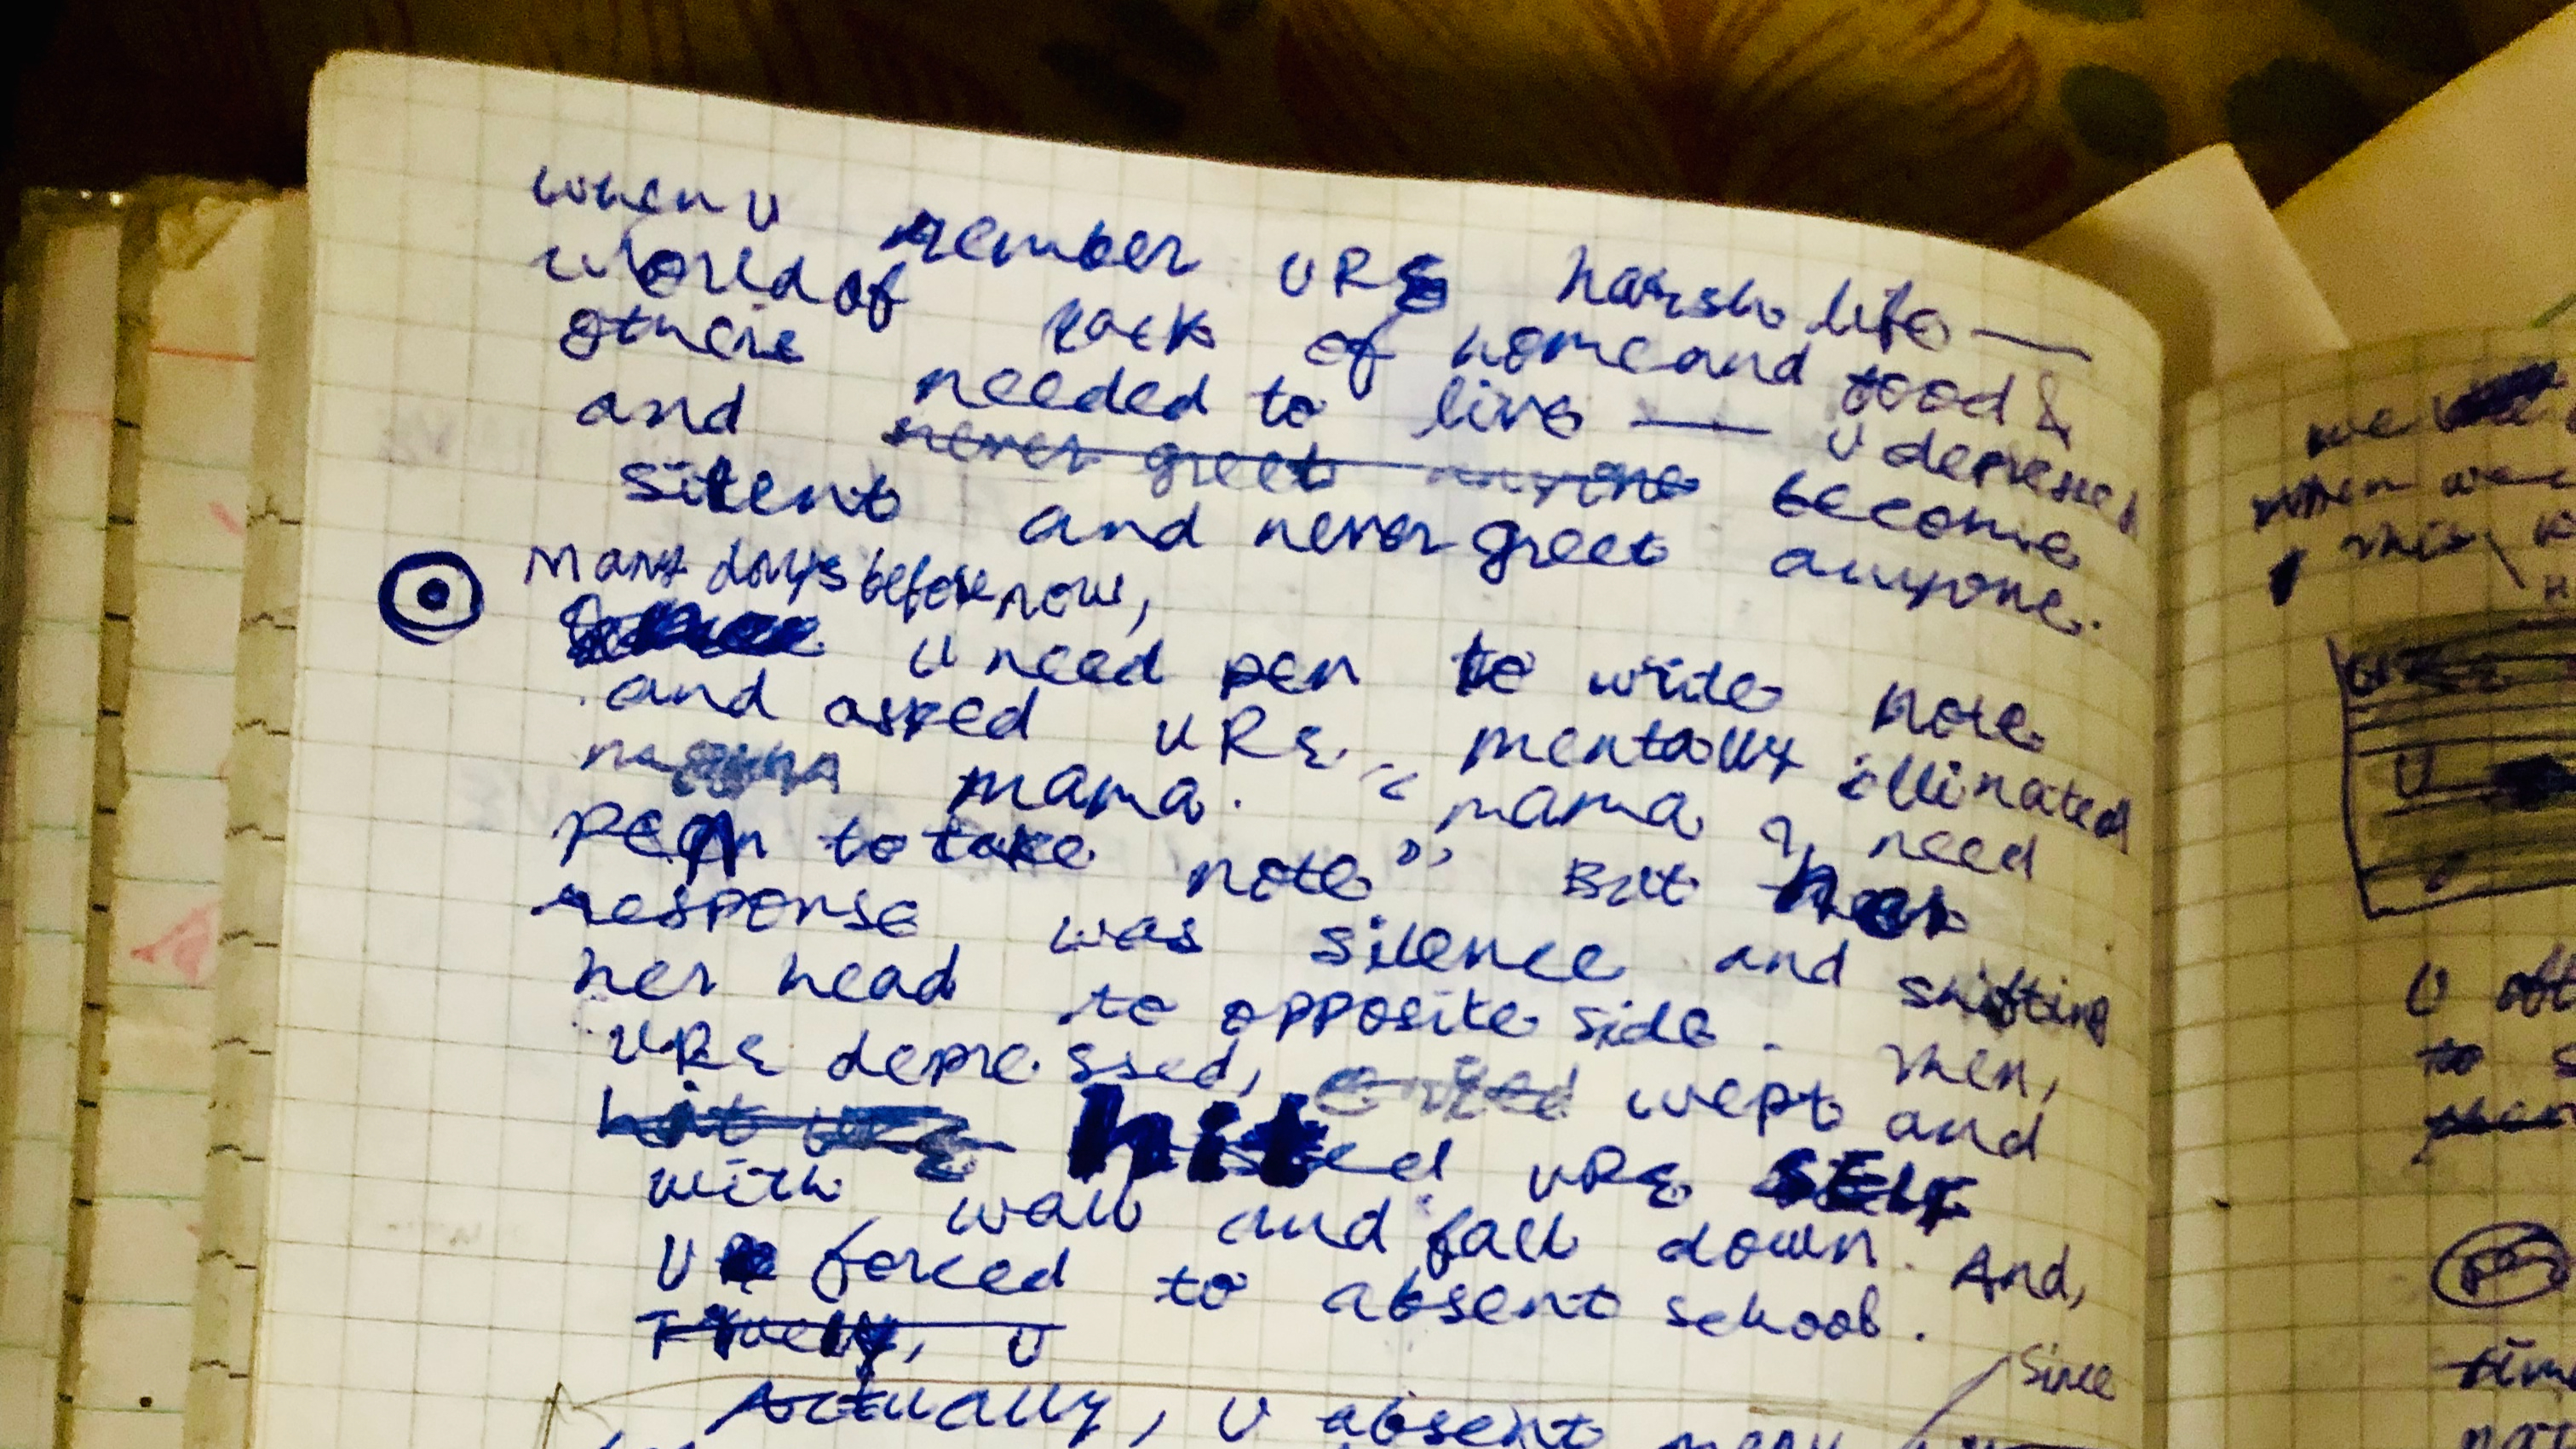 when U remember URE harsh life —
world of lack of home and food &
others needed to live — U depressed
and never greet anyone become
silent and never greet anyone.
Many days before now,
U need pen to wride note
and asked URE mentally illinated
mama. "mama I need
pen to take note" But her
response was silence and shifting
her head to opposite side. Then,
URE depressed, cried wept and
hit URE hitted URE SELF
with wall and fall down. And,
U forced to absent school.
U
since
Actually, U absent many
we
when we
this
U
U
to